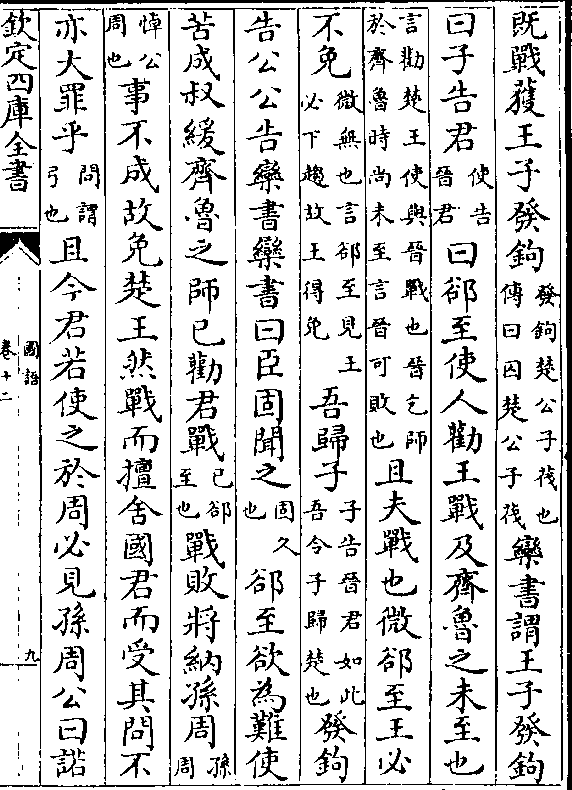 既戰獲王子發鉤發鉤楚公子茷也傳曰囚楚公子茷欒書謂王子發鉤
曰子告君使告晉君曰郤至使人勸王戰及齊魯之未至也
言勸楚王使與晉戰也晉乞師於齊魯時尚未至言晉可敗也且夫戰也微郤至王必
不免微無也言郤至見王必下趨故王得免吾歸子子告晉君如此吾今子歸楚也發鉤
告公公告欒書欒書曰臣固聞之固久也郤至欲為難使
苦成叔緩齊魯之師已勸君戰已郤至也戰敗將納孫周孫周
悼公周也事不成故免楚王然戰而擅舍國君而受其問不
亦大罪乎問謂弓也且今君若使之於周必見孫周公曰諾
欽定四庫全書
國語
卷十二
九